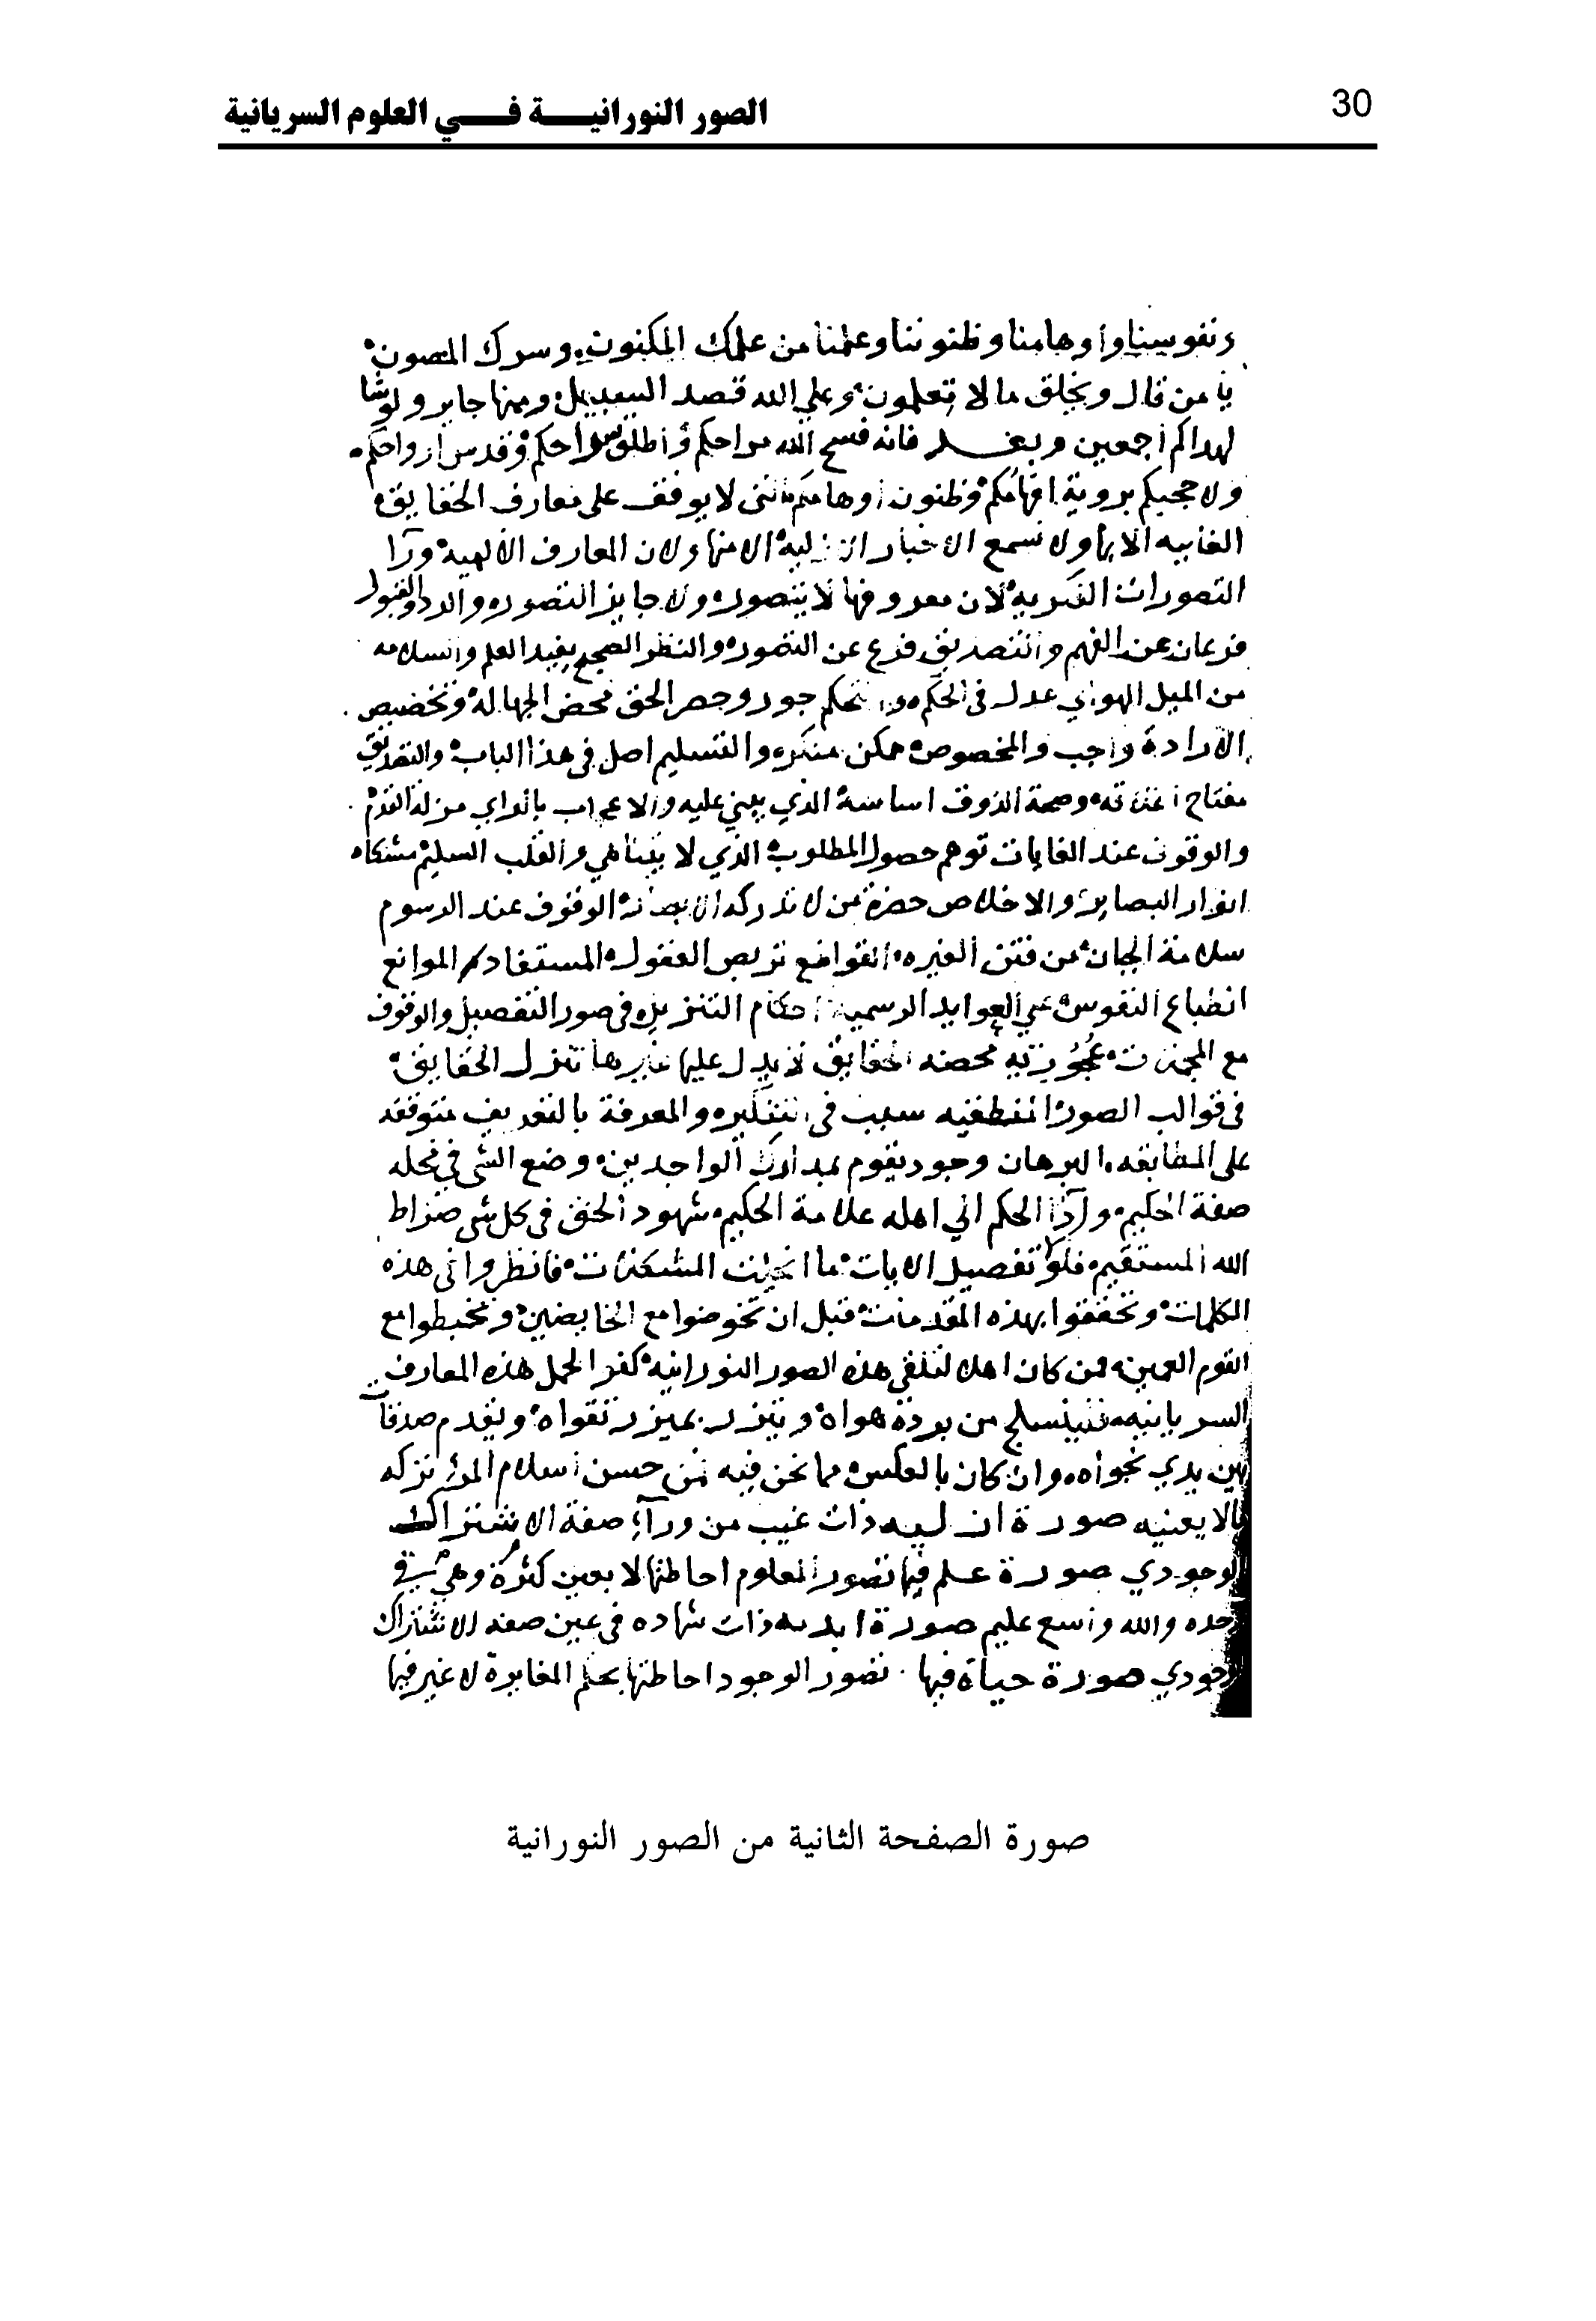 30
الصور النورانية في العلوم السريانية
ونفوسنا وأوهامنا وظنوننا وعلمنا من علمك المكنون وسرك المصون
يا من قال ويخلق ما لا تعلمون وعلي الله قصد السبيل ومنها جاير ولوشا
لهداكم اجمعين وبعد فانه فسح الله مراحكم واطلق سراحكم وقدس ارواحكم
ولا حجبكم بروية افهامكم وظنون اوهامكم لا يوقف على معارف الحقايق
الغايبه الا بها ولا تسمع الاخبار الا منها ولان المعارف الالهية ورآ
التصورات الفكرية لان معروفها لا يتصور ولا جايز التصور والرد والقبول
فرعان عن الفهم والتصديق فرع عن التصور والنظر الصحيح يفيد العلم والسلامه
من الميل الهوايي عدل في الحكم جور وحصر الحق محض الجهاله وتخصيص
الارادة واجب والمخصوص ممكن منكر والتسليم اصل في هذا الباب والتصديق
مفتاح وصحة الذوق اساسه الذي يبني عليه والاعجاب بالراي مزلة القدم
والوقوف عند الغايات توهم حصول المطلوب الذي لا يتناهي والقلب السليم مشكاه
انوار البصاير والاخلاص حضرة من لا تدركه الوقوف عند الرسوم
سلامة الجان من فتن الغيره القواطع تربص العقول المستفاد كم الموانع
انطباع النفوس علي العوايد الرسمية احكام التنزيل في صور التفصيل والوقوف
مع محضه الحقايق لا يدل عليها غيرها تنزل الحقايق
في قوالب الصور سبب في والمعرفة بالتعريف متوقفه
على المطابقه البرهان وجود يقوم بمدارك الواجدين وضع الشي في محله
صفة الحكيم وادا الحكم الي اهله علامة الحكيم شهود الحق في كل شي صراط
الله المستقيم فلولا تفصيل الايات ما المشكلات فانظروا في هذه
الكلمات وتحققوا بهذه المقدمات قبل ان تخوضوا مع الخايضين وتخبطوا مع
القوم العمين فمن كان اهلا لتلقي هذه الصور النورانية كفوا لحمل هذه المعارف
السريانيه فلينسلخ من بردة هواه ويتزر بميزر تقواه ويقدم صدقات
بين يدي نجواه وان كان بالعكس مما نحن فيه فمن حسن اسلام المرء تركه
مالا يعنيه صورة ازليه ذات غيب من ورآء صفة الاشتراك
الوجودي صورة علم فيها تصور المعلوم احاطتها لا بعين كثرة وهي في
وحده والله واسع عليم صورة ابديه ذات شهاده في عين صفه الاشتراك
الوجودي صورة حياة فيها تصور الوجود احاطتها بحكم المغايرة لا غير فيها
صورة الصفحة الثانية من الصور النورانية